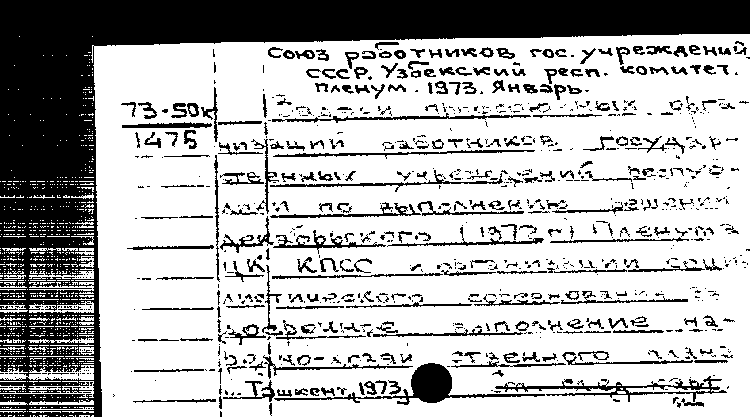 Союз работников гос. учреждений
СССР. Узбекский респ. комитет.
Пленум. 1973. Январь.
73-50к
1475
Задачи профсоюзных орга-
низаций работников государ-
ственных учреждений респуб-
лики по выполнению решений
декабрьского (1972 г) Пленума
ЦК КПСС и организации социа-
листического соревнования за
досрочное выполнение на-
родно-хозяйственного плана
... Ташкент, 1973,
см. след карт.